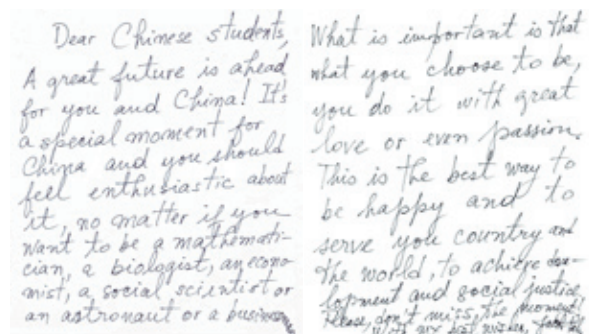 Dear Chinese students,
A great future is ahead
for you and China! It's
a special moment for
China and you should
feel enthusiastic about
it, no matter if you
want to be a mathemati-
cian, a biologist, an econo-
mist, a social scientist or
an astronaut or a business
What is important is that
what you choose to be,
you do it with great
love or even passion.
This is the best way to
be happy and to
serve you country and
the world, to achieve dev-
lopment and social justice
Please, don't miss, the moment!